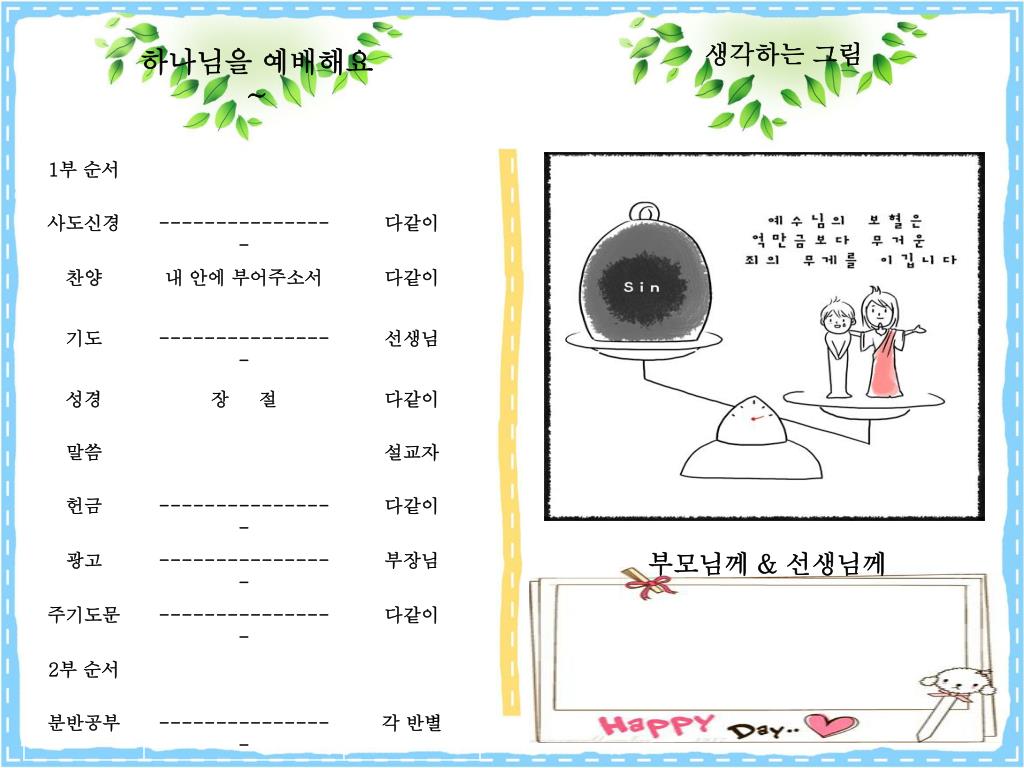 하나님을 예배해요
~
1부 순서
사도신경 --------------- 다같이
-
찬양 내 안에 부어주소서 다같이
기도 --------------- 선생님
-
성경 장 절 다같이
말씀 설교자
헌금 --------------- 다같이
-
광고 --------------- 부장님
-
주기도문 --------------- 다같이
-
2부 순서
분반공부 --------------- 각 반별
-
생각하는 그림
예수님의 보혈은
억만금보다 무거운
죄의 무게를 이깁니다
Sin
부모님께 & 선생님께
Happy Day..